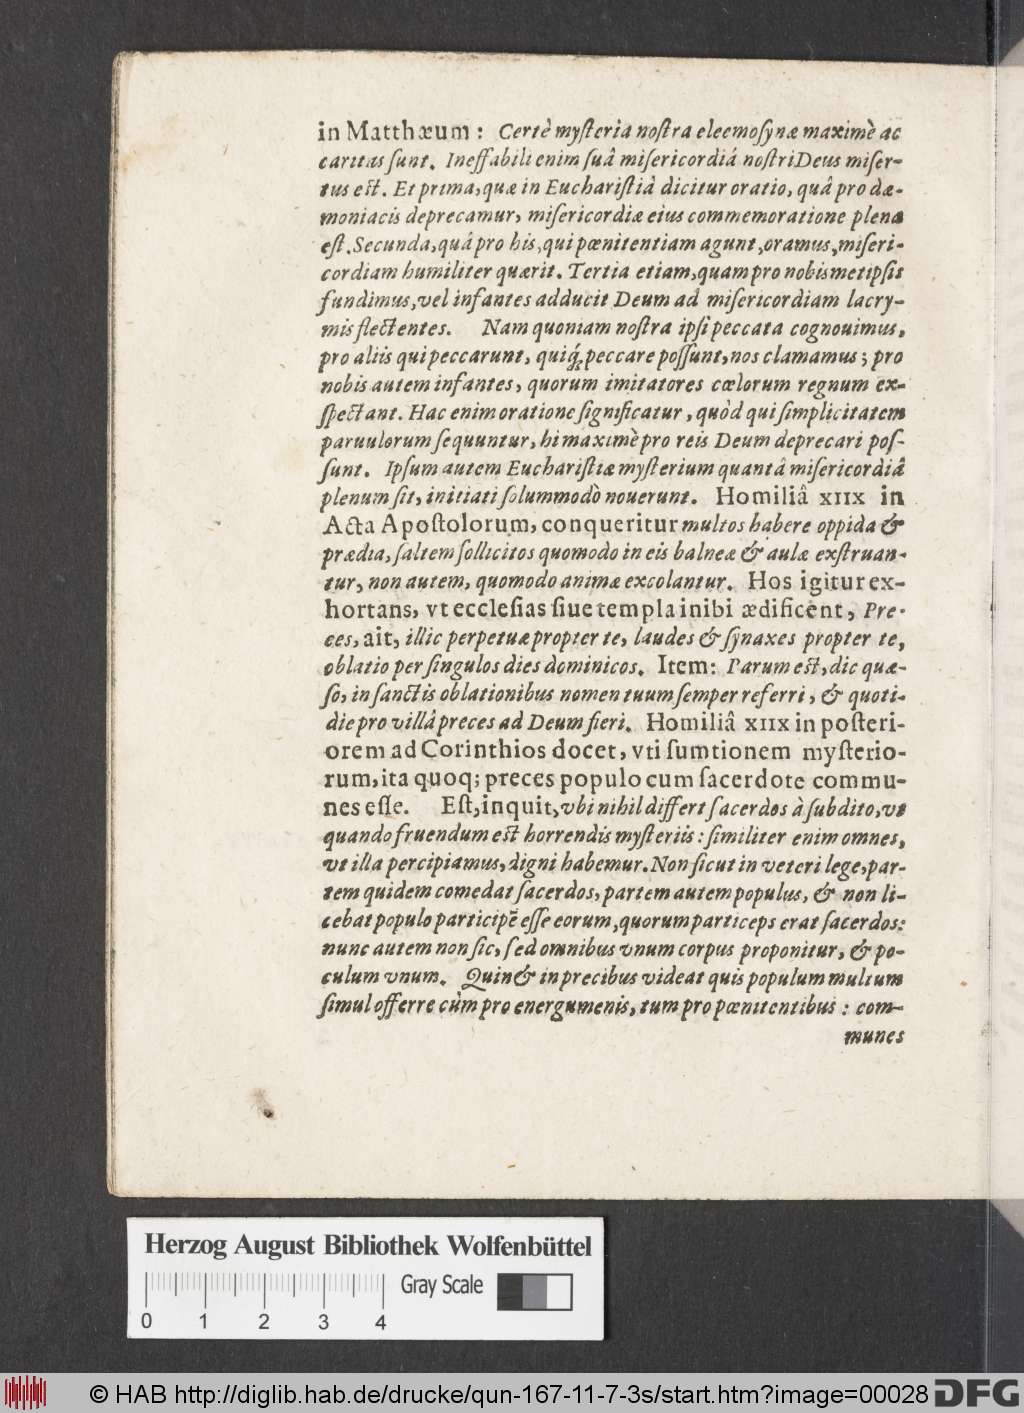 in Matthæum: Certè myſteria noſtra eleemoſynæ maximè ac
caritas ſunt. Ineffabili enim ſuâ miſericordiâ noſtri Deus miſer-
tus eſt. Et prima, quæ in Euchariſtiâ dicitur oratio, quâ pro dæ-
moniacis deprecamur, miſericordiæ eius commemoratione plena
eſt. Secunda, quâ pro his, qui pœnitentiam agunt, oramus, miſeri-
cordiam humiliter quærit. Tertia etiam, quam pro nobismetipſis
fundimus, vel infantes adducit Deum ad miſericordiam lacry-
mis flectentes. Nam quoniam noſtra ipſi peccata cognouimus,
pro aliis qui peccarunt, quiq́; peccare poſſunt, nos clamamus; pro
nobis autem infantes, quorum imitatores cœlorum regnum ex-
ſpectant. Hac enim oratione ſignificatur, quòd qui ſimplicitatem
paruulorum ſequuntur, hi maximè pro reis Deum deprecari poſ-
ſunt. Ipſum autem Euchariſtiæ myſterium quantâ miſericordiâ
plenum ſit, initiati ſolummodò nouerunt. Homiliâ XIIX in
Acta Apoſtolorum, conqueritur multos habere oppida &
prædia, ſaltem ſollicitos quomodo in eis balneæ & aulæ exſtruan-
tur, non autem, quomodo animæ excolantur. Hos igitur ex-
hortans, vt eccleſias ſiue templa inibi ædificent, Pre-
ces, ait, illic perpetuæ propter te, laudes & ſynaxes propter te,
oblatio per ſingulos dies dominicos. Item: Parum eſt, dic quæ-
ſo, in ſanctis oblationibus nomen tuum ſemper referri, & quoti-
die pro villâ preces ad Deum fieri. Homiliâ XIIX in poſteri-
orem ad Corinthios docet, vti ſumtionem myſterio-
rum, ita quoq; preces populo cum ſacerdote commu-
nes eſſe. Eſt, inquit, vbi nihil differt ſacerdos à ſubdito, vt
quando fruendum eſt horrendis myſteriis: ſimiliter enim omnes,
vt illa percipiamus, digni habemur. Non ſicut in veteri lege, par-
tem quidem comedat ſacerdos, partem autem populus, & non li-
cebat populo participẽ eſſe eorum, quorum particeps erat ſacerdos:
nunc autem non ſic, ſed omnibus vnum corpus proponitur, & po-
culum vnum. Quin & in precibus videat quis populum multum
ſimul offerre cùm pro energumenis, tum pro pœnitentibus: com-
munes
Herzog August Bibliothek Wolfenbüttel
Gray Scale
0 1 2 3 4
© HAB http://diglib.hab.de/drucke/qun-167-11-7-3s/start.htm?image=00028 DFG